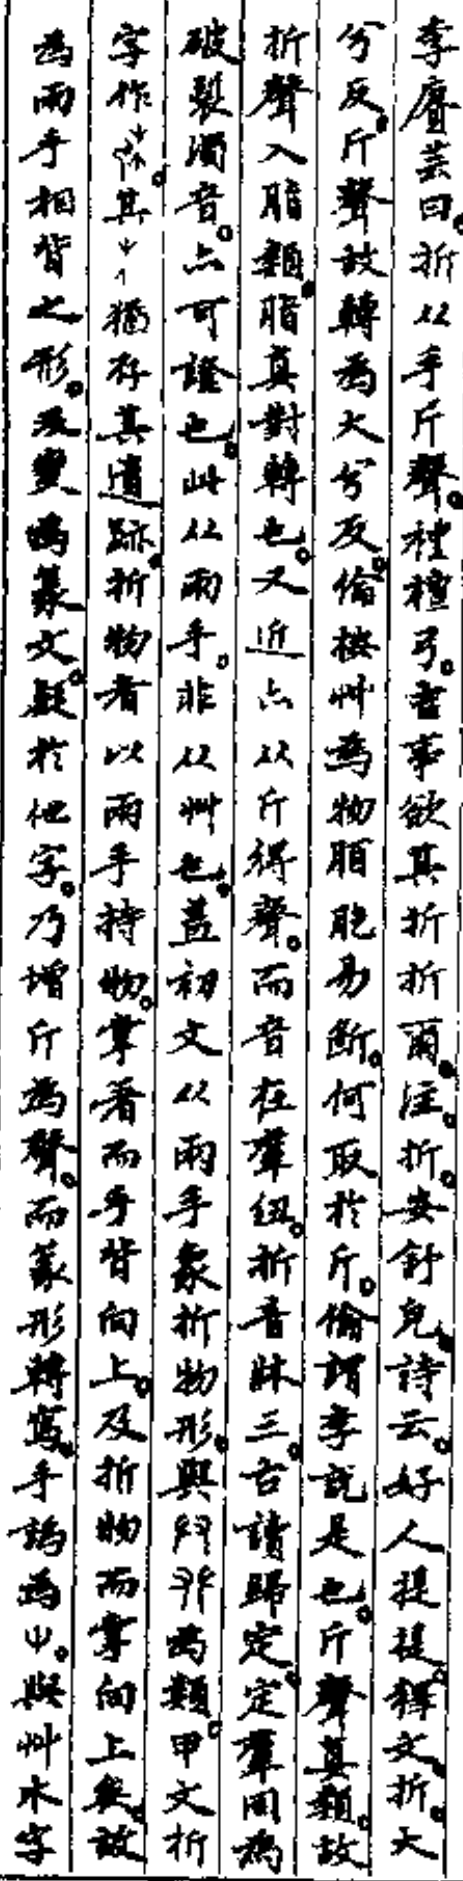 李賡芸曰。折从手斤聲。禮檀弓。吉事欲其折折爾。注。折。安舒皃。詩云。好人提提。釋文。折。大
兮反。斤聲故轉為大兮反。倫按艸為物脂脃易斷。何取於斤。倫謂李說是也。斤聲真類。故
折聲入脂類。脂真對轉也。又近亦从斤得聲。而音在羣紐。折音牀三。古讀歸定。定羣同為
破裂濁音。亦可證也。此从兩手。非从艸也。蓋初文从兩手象折物形。與為類。甲文折
字作。其猶存其遺跡。折物者以兩手持物。掌着而手背向上。及折物而掌向上矣。故
為兩手相背之形。及變為篆文。疑於他字。乃增斤為聲。而篆形轉寫。手譌為屮。與艸木字